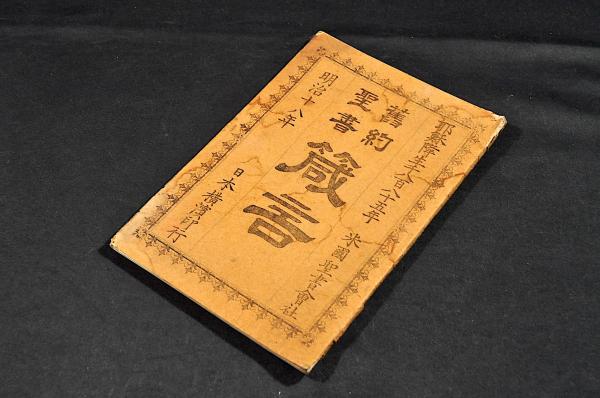 耶穌降生千八百八十五年
米國聖書會社
舊約
聖書
箴言
明治十八年
日本橫濱印行